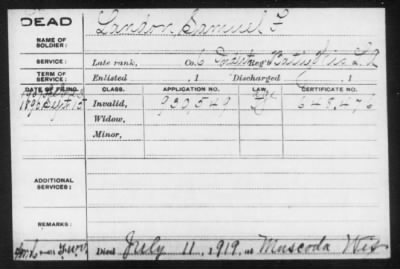 DEAD
NAME OF
SOLDIER:
Landon, Samuel F
SERVICE:
Late rank, Co. 6 Batty Wis L.A
TERM OF
SERVICE:
Enlisted , 1 Discharged , 1
DATE OF FILING. CLASS. APPLICATION NO. LAW. CERTIFICATE NO.
Invalid, 930,549 648,476
Widow,
Minor,
ADDITIONAL
SERVICES:
REMARKS:
Died July 11, 1919, at Muscoda Wis